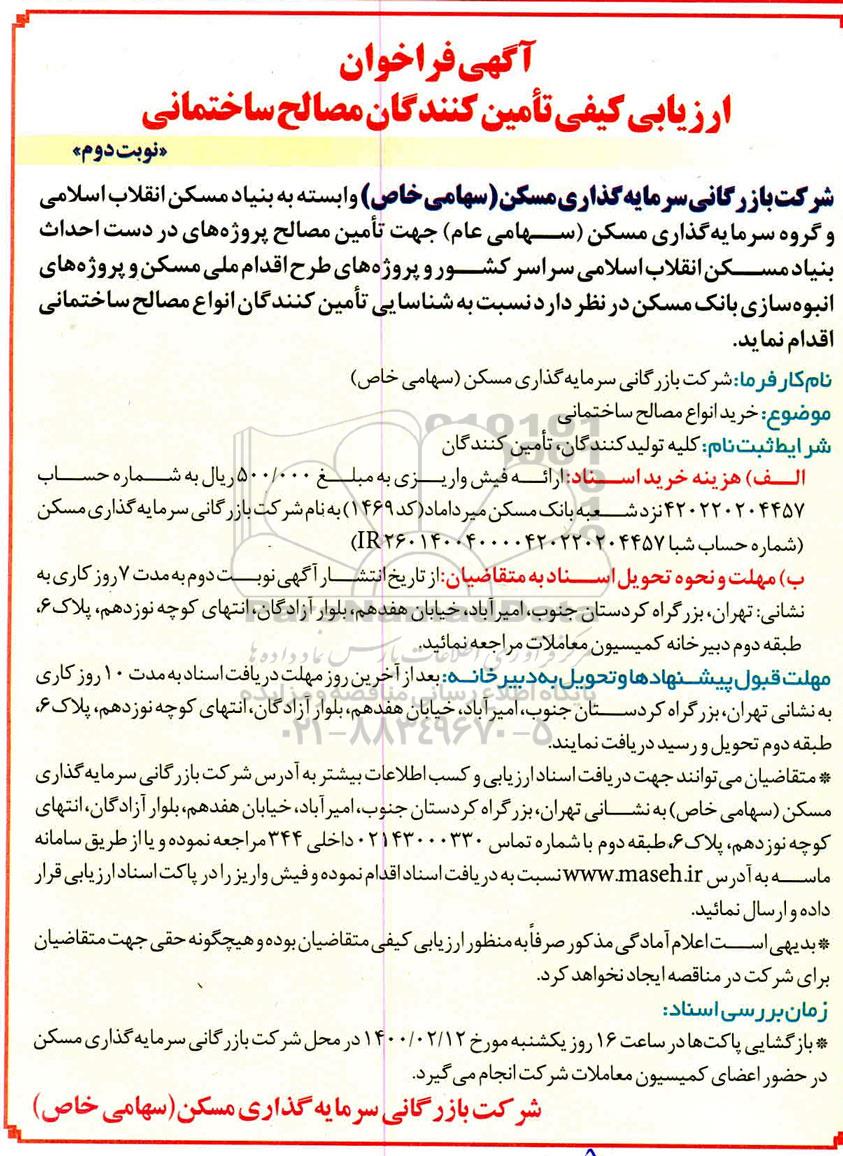 آگهی فراخوان
ارزیابی کیفی تأمین کنندگان مصالح ساختمانی
«نوبت دوم»
شرکت بازرگانی سرمایه گذاری مسکن (سهامی خاص) وابسته به بنیاد مسکن انقلاب اسلامی
و گروه سرمایه گذاری مسکن (سهامی عام) جهت تأمین مصالح پروژه‌های در دست احداث
بنیاد مسکن انقلاب اسلامی سراسر کشور و پروژه‌های طرح اقدام ملی مسکن و پروژه‌های
انبوه‌سازی بانک مسکن در نظر دارد نسبت به شناسایی تأمین کنندگان انواع مصالح ساختمانی
اقدام نماید.
نام کارفرما: شرکت بازرگانی سرمایه گذاری مسکن (سهامی خاص)
موضوع: خرید انواع مصالح ساختمانی
شرایط ثبت نام: کلیه تولیدکنندگان، تأمین کنندگان
الف) هزینه خرید اسناد: ارائه فیش واریزی به مبلغ ۵۰۰/۰۰۰ ریال به شماره حساب
۴۲۰۲۲۰۲۰۴۴۵۷ نزد شعبه بانک مسکن میرداماد (کد ۱۴۶۹) به نام شرکت بازرگانی سرمایه گذاری مسکن
(شماره حساب شبا IR۲۶۰۱۴۰۰۴۰۰۰۰۴۲۰۲۲۰۲۰۴۴۵۷)
ب) مهلت و نحوه تحویل اسناد به متقاضیان: از تاریخ انتشار آگهی نوبت دوم به مدت ۷ روز کاری به
نشانی: تهران، بزرگراه کردستان جنوب، امیرآباد، خیابان هفدهم، بلوار آزادگان، انتهای کوچه نوزدهم، پلاک ۶،
طبقه دوم دبیرخانه کمیسیون معاملات مراجعه نمائید.
مهلت قبول پیشنهادها و تحویل به دبیرخانه: بعد از آخرین روز مهلت دریافت اسناد به مدت ۱۰ روز کاری
به نشانی تهران، بزرگراه کردستان جنوب، امیرآباد، خیابان هفدهم، بلوار آزادگان، انتهای کوچه نوزدهم، پلاک ۶،
طبقه دوم تحویل و رسید دریافت نمایند.
* متقاضیان می‌توانند جهت دریافت اسناد ارزیابی و کسب اطلاعات بیشتر به آدرس شرکت بازرگانی سرمایه گذاری
مسکن (سهامی خاص) به نشانی تهران، بزرگراه کردستان جنوب، امیرآباد، خیابان هفدهم، بلوار آزادگان، انتهای
کوچه نوزدهم، پلاک ۶، طبقه دوم با شماره تماس ۰۲۱۴۳۰۰۰۳۳۰ داخلی ۳۴۴ مراجعه نموده و یا از طریق سامانه
ماسه به آدرس www.maseh.ir نسبت به دریافت اسناد اقدام نموده و فیش واریز را در پاکت اسناد ارزیابی قرار
داده و ارسال نمائید.
* بدیهی است اعلام آمادگی مذکور صرفاً به منظور ارزیابی کیفی متقاضیان بوده و هیچگونه حقی جهت متقاضیان
برای شرکت در مناقصه ایجاد نخواهد کرد.
زمان بررسی اسناد:
* بازگشایی پاکت‌ها در ساعت ۱۶ روز یکشنبه مورخ ۱۴۰۰/۰۲/۱۲ در محل شرکت بازرگانی سرمایه گذاری مسکن
در حضور اعضای کمیسیون معاملات شرکت انجام می گیرد.
شرکت بازرگانی سرمایه گذاری مسکن (سهامی خاص)
ParsNamadData
مرکز فرآوری اطلاعات پارس نماد داده‌ها
پایگاه اطلاع رسانی مناقصه و مزایده
۰۲۱-۸۸۳۴۹۶۷۰-۵